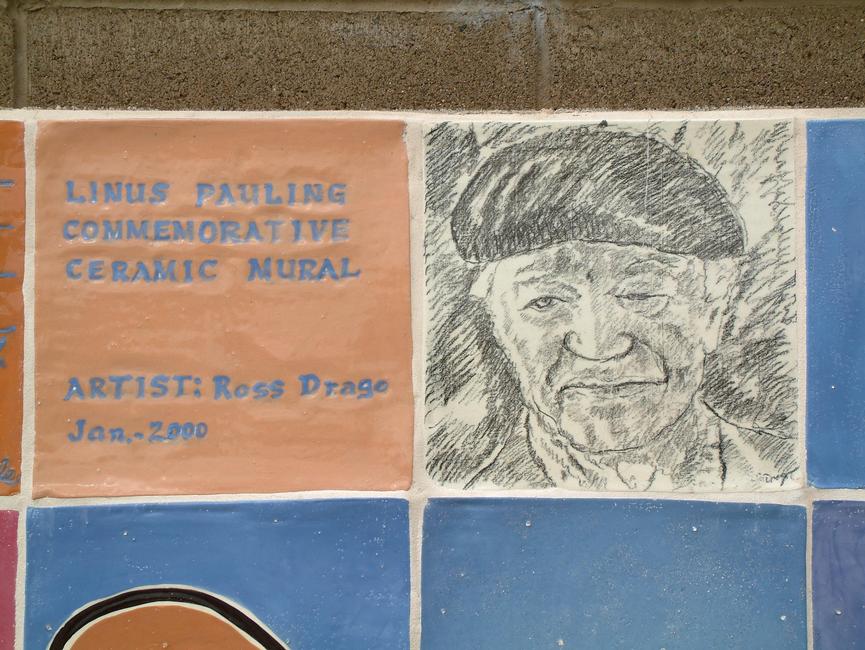 LINUS PAULING
COMMEMORATIVE
CERAMIC MURAL
ARTIST: Ross Drago
Jan.-2000